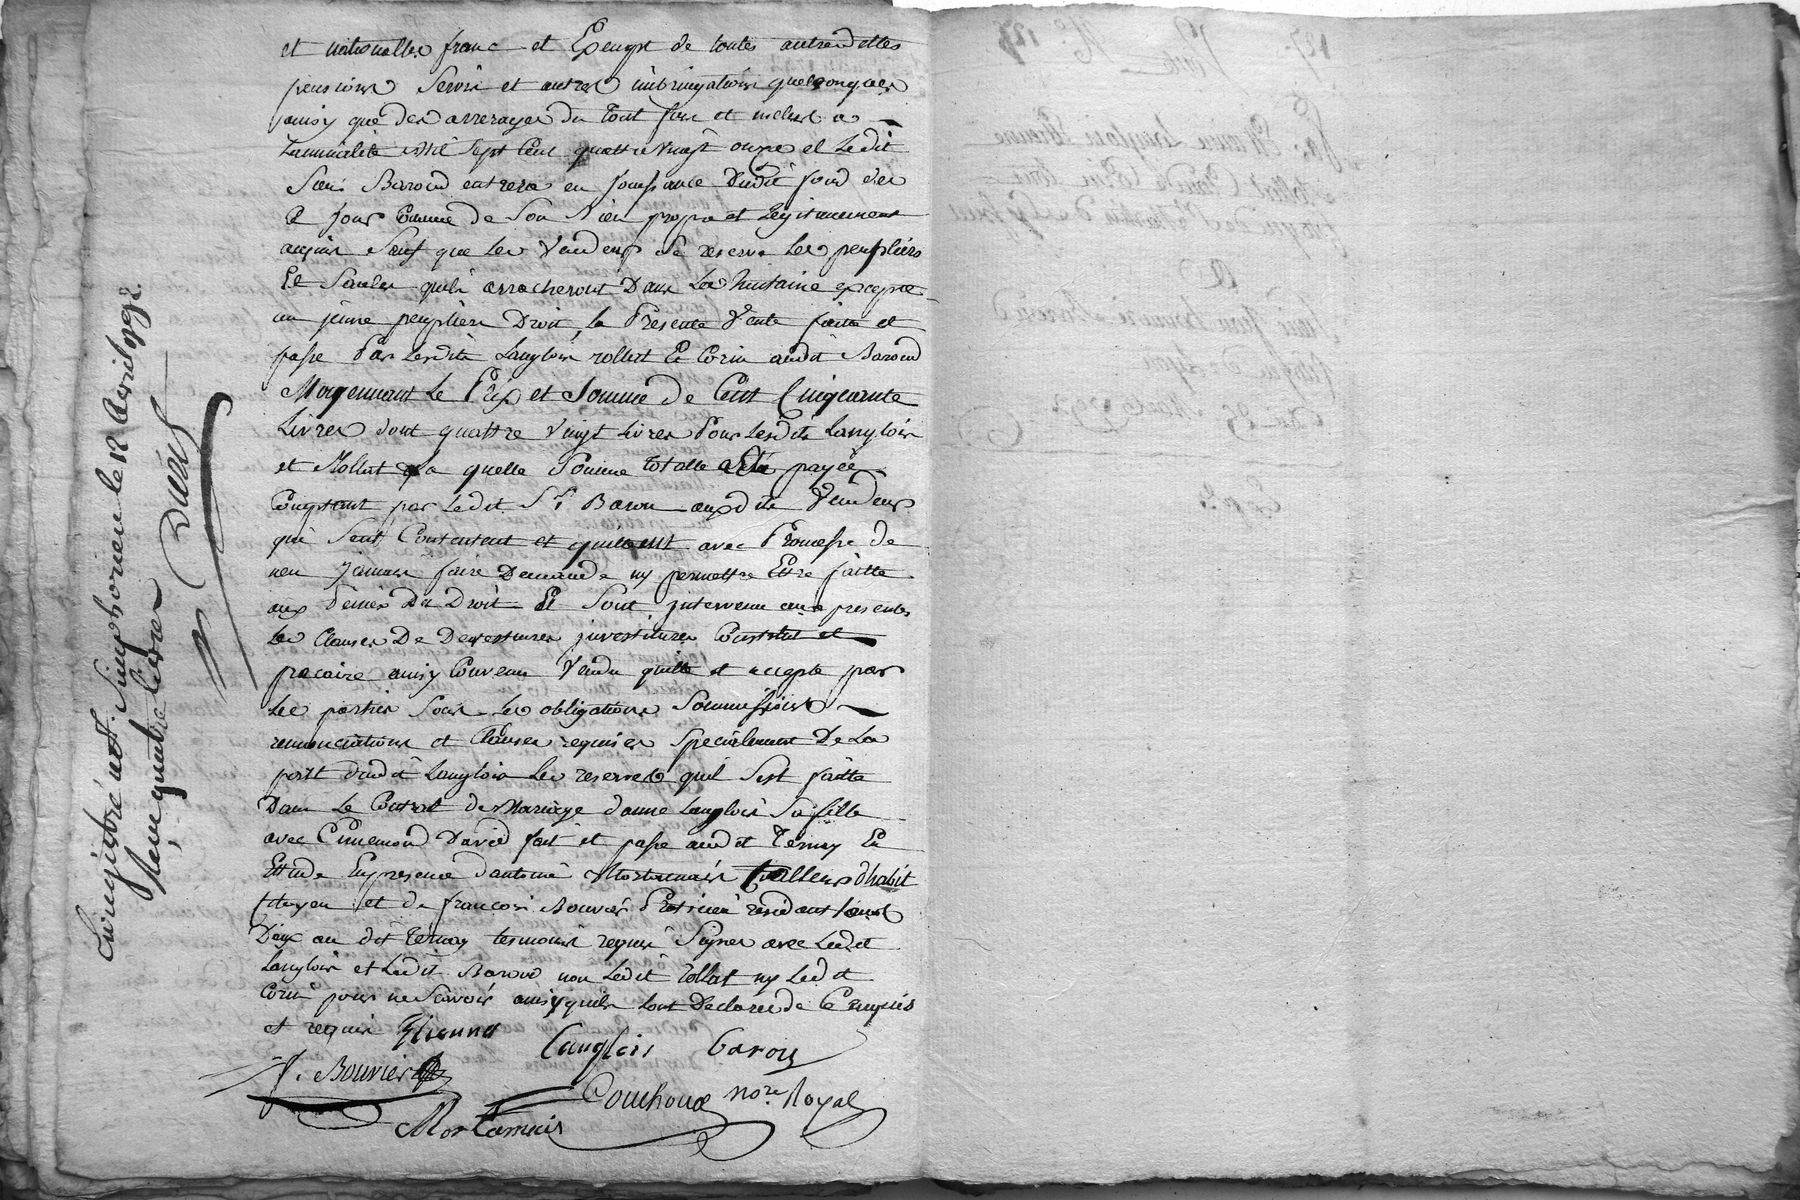 et nationalles franc et Exempt de toutes autres dettes
pensions Servis et autres imbringations quelconques
ainsy que des arrerages du tout fixe et inclus a
Lannuelité Mil Sept Cent quattre vingt onze et Ledit
Sieur Baroud entrera en Jouissance dudit fond des
ce jour Comme de Son Bien propre et Legitimement
acquis Sauf que Les Vendeurs Se reserve Les peupliers
Et Saules quils arracheront Dans La huitaine excepte
un jeune peuplier Droit, La Presente Vente faitte et
passe Par Lesdits Langlois rollat Et Corin audit Baroud
Moyennant Le Prix et Somme de Cent Cinquante
Livres dont quattre Vingt Livres Pour Lesdits Langlois
et Rollat La quelle Somme totalle a Eté payée
Comptant par Ledit Sr Baron auxdits Vendeurs
qui Sent Contentent et quittent avec Promesse de
nen Jamais faire Demande ny permettre Etre faitte
aux peines De Droit Et Sont intervenu aux presentes
Les Clauses De Devestitures investitures Constitut et
precaire ainsy Convenu Vendu quitte et accepte par
Les parties Sous Les obligations Soumissions
renonciations et Clauses requises Specialement De La
part dudit Langlois Les reserves quil Sest faitte
Dans Le Contrat de Mariage danne Langlois Sa fille
avec David fait et passe audit Ternay En
Ettude En presence dantoine Mortamais tailleur dhabit
Citoyen et de francois Bouvier Praticien residant tous
Deux au dit Ternay temoins requis Signes avec Ledit
Langlois et Ledit Baroud non Ledit rollat ny Ledit
Corin pour ne Scavoir ainsy quils Lont Declare de Ce enquis
et requis Etienne Langlois Baron
f. Bouvier
Couchoud nore Royal
Mortamais
Enregistré a St. Simphorien le 12 Avril 1792.
Reçu quatre Livres